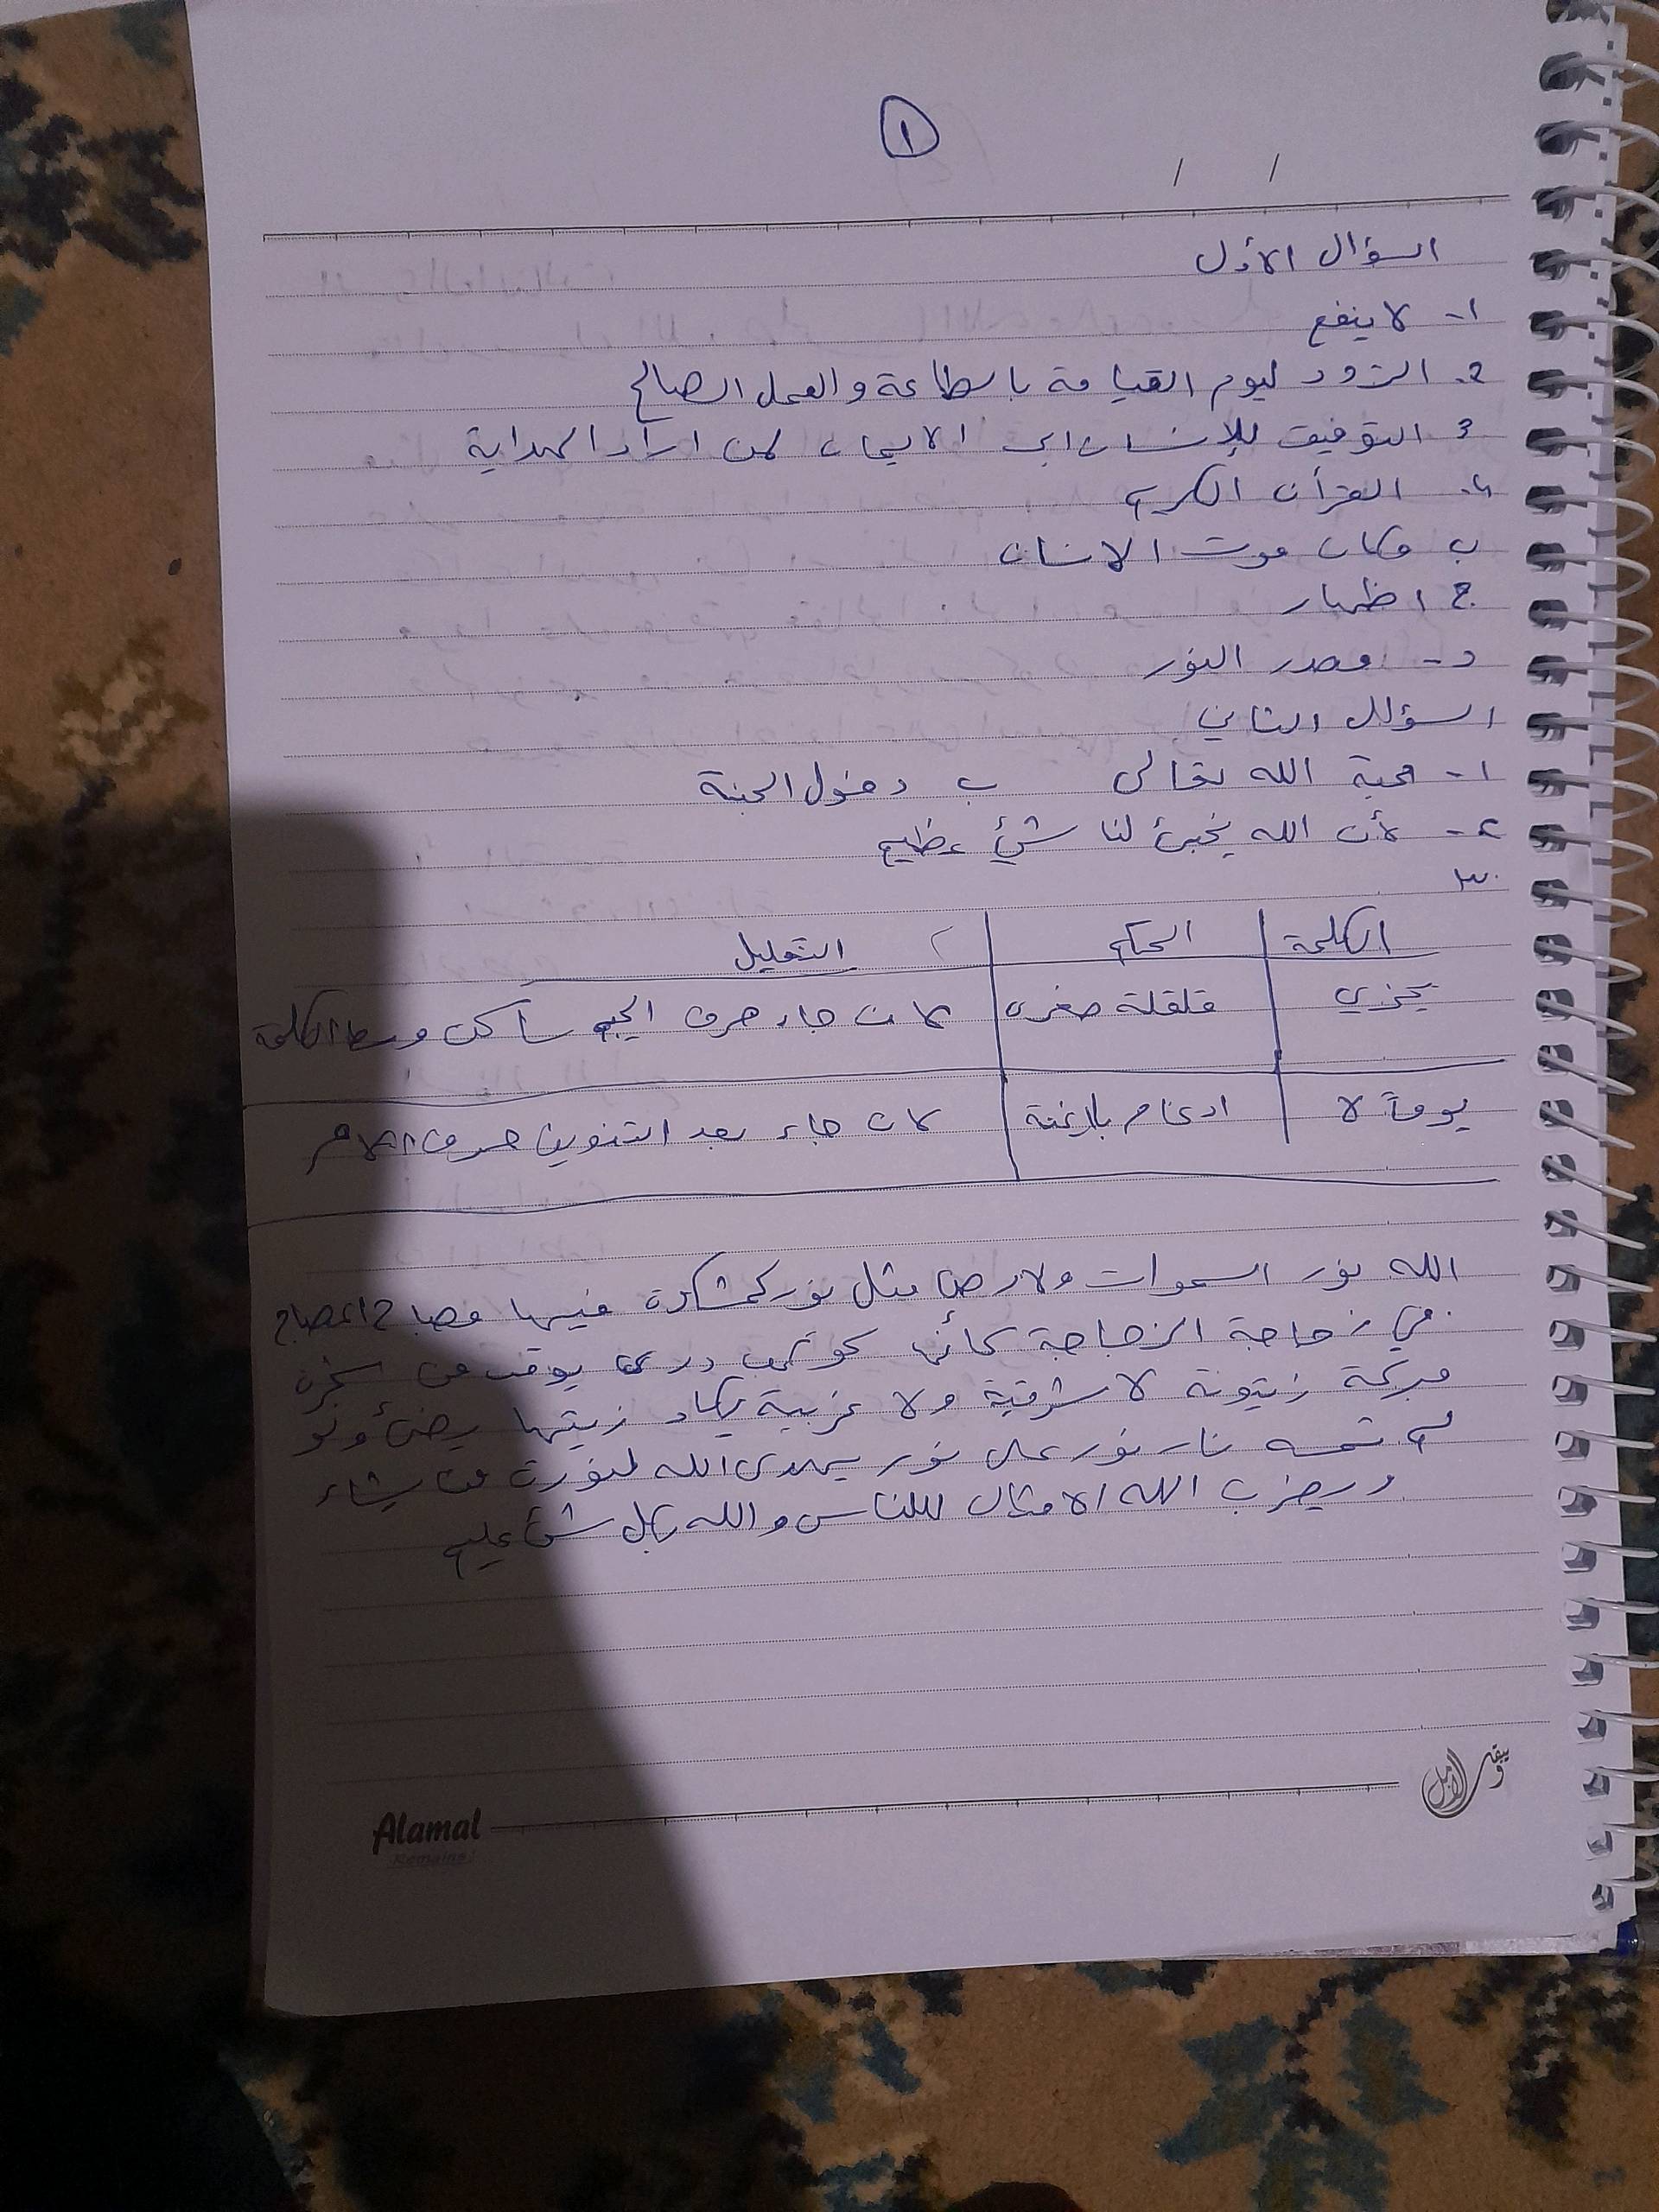 ١
/ /
السؤال الأول
١- لا ينفع
2. التزود ليوم القيامة بالطاعة والعمل الصالح
3 التوفيق للإنسان الى الايمان لمن اراد الهداية
4. القرأن الكريم
ب مكان موت الانسان
ج اظهار
د- مصدر النور
السؤلل الثاني
١- محبة الله تعالى ب دخول الجنة
٢- لأن الله يخبئ لنا شئ عظيم
٣.
الكلمة الحكم التعليل
يجزي قلقلة صغرى كان جاء حرف الجيم ساكن وسط الكلمة
يوماً لا ادغام بلاغنة كان جاء بعد التنوين حرف اللام
الله نور السموات ولارض مثل نور كمشكوة فيها مصباح المصباح
في زجاجة الزجاجة كأنها كوكب درى يوقد من شجرة
مبركة زيتونة لا شرقية ولا غربية يكاد زيتها يضئ ولو
لم تمسه نار نور على نور يهدى الله لنورة من يشاء
ويضرب الله الامثال للناس والله بكل شئ عليم
ويبقى الأمل
Alamal
Remains